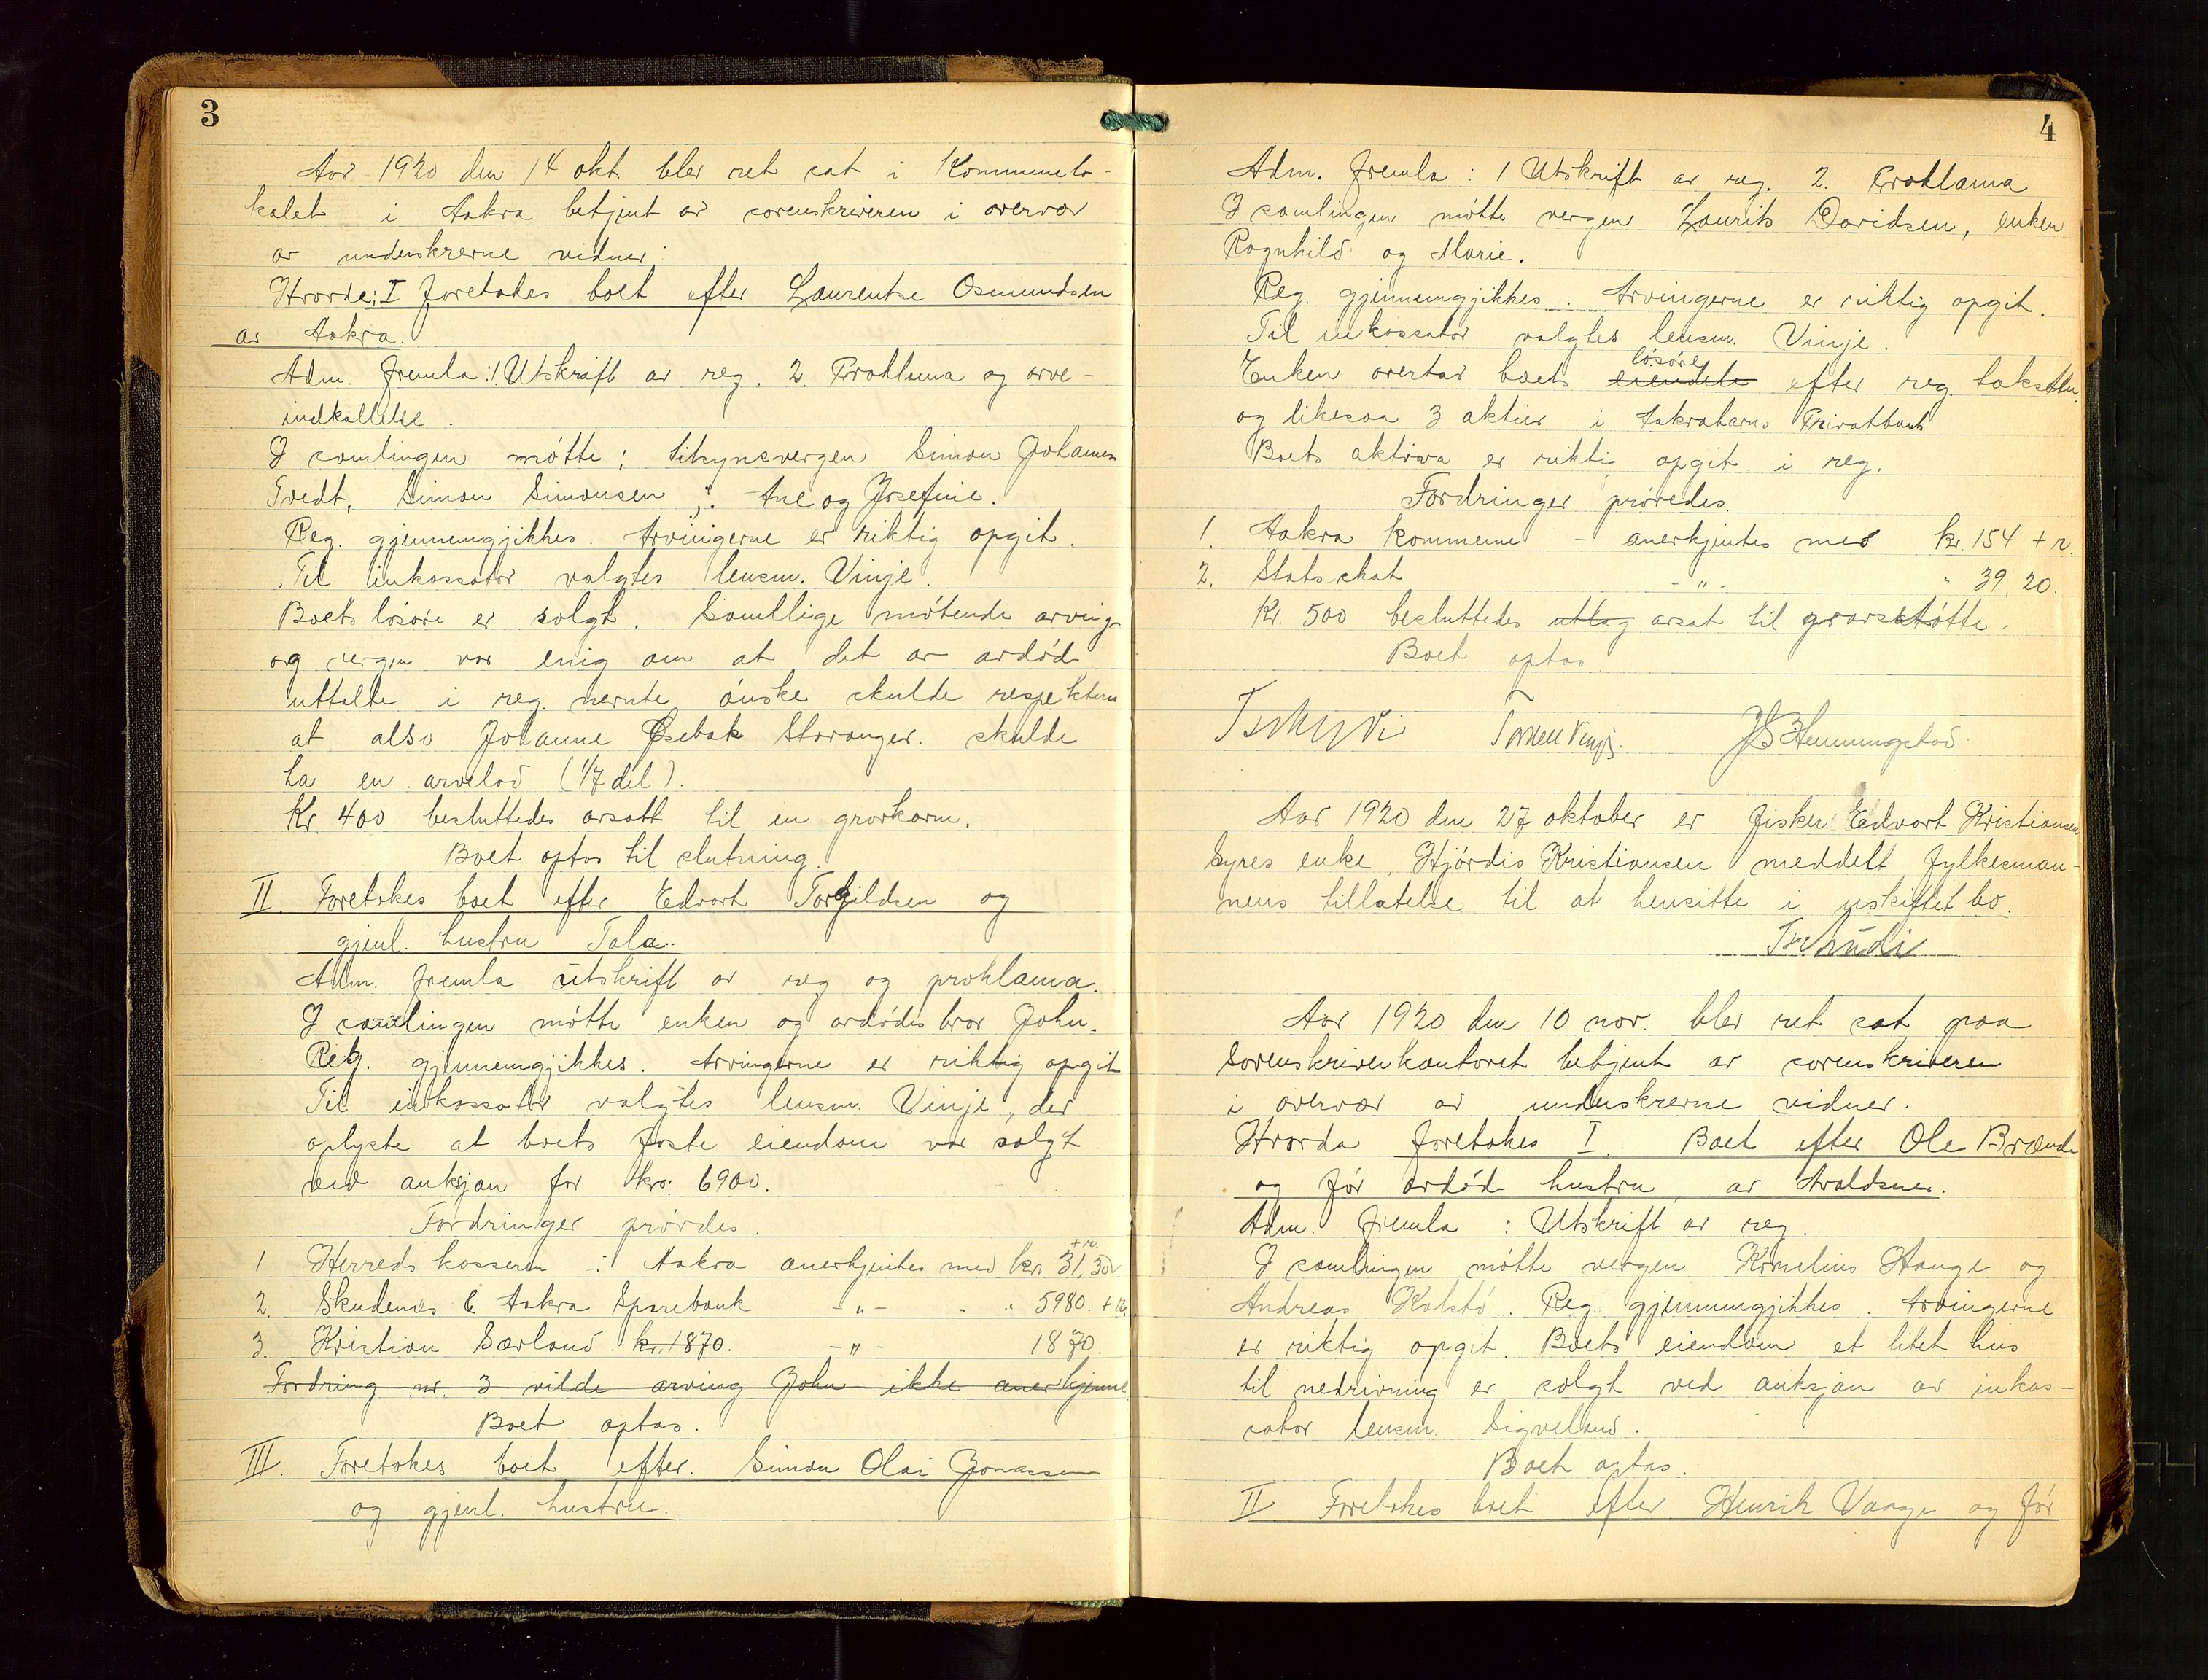 3
Aar 1920 den 14 okt. blev ret sat i Kommunelo-
kalet i Aakra betjent av sorenskriveren i overvær
av underskrevne vidner.
Hvorda: I foretokes boet efter Laurentse Osmundsen
av Aakra.
Adm. fremla: 1 Utskrift av reg. 2. Proklama og arve-
indkallelse.
I samlingen møtte: tilsynsvergen Simon Johannes
Tvedt, Simon Simonsen, Ane og Josefine.
Reg. gjennemgikkes. Arvingerne er riktig opgit.
Til inkassator valgtes lensm. Vinje.
Boets løsøre er solgt. Samtlige møtende arving-
og vergen var enig om at det av avdøde
uttalte i reg. nevnte ønske skulde respekteres
at also Johanne Øsebak Stavanger skulde
ha en arvelod (1/7 del).
Kr. 400 besluttedes avsatt til en gravkarm.
Boet optas til slutning.
II Foretokes boet efter Edvart Torgildsen og
gjenl. hustru Tala.
Adm. fremla utskrift av reg og proklama.
I samlingen møtte enken og avdødes bror John.
Reg. gjennemgjikkes. Arvingerne er riktig opgit
Til inkassator valgtes lensm. Vinje, der
oplyste at boets faste eiendom var solgt
ved auksjon for kr. 6900.
Fordringer prøvdes.
1 Herredskasseren i Aakra anerkjentes med kr. 31,30 + r.
2. Skudenes & Aakra Sparebank -"- " 5980. + r.
3. Kristian Særland kr. 1870. -"- 1870.
Fordring nr. 3 vilde arving John ikke anerkjenne
Boet optas.
III. Foretokes boet efter Simon Olai Jonassen
og gjenl. hustru.
4
Adm. fremla: 1 Utskrift av reg. 2. Proklama
I samlingen møtte vergen Laurits Davidsen, enken
Ragnhild og Marie.
Reg. gjennemgjikkes. Arvingerne er riktig opgit.
Til inkassator valgtes lensm. Vinje.
løsøre
Enken overtar boets eiendele efter reg. taksten
og likesaa 3 aktier i Aakrahavns Privatbank
Boets aktiva er riktig opgit i reg.
Fordringer prøvedes.
1. Aakra kommune - anerkjentes med kr. 154 + r.
2. Statsskat -"- " 39,20.
Kr. 500 besluttedes utlag avsat til gravstøtte.
Boet optas.
Tschudi Torkell Vinje JS Hemmingstad
Aar 1920 den 27 oktober er fisker Edvart Kristiansen
Syres enke, Hjørdis Kristiansen meddelt fylkesman-
nens tillatelse til at hensitte i uskiftet bo.
Tschudi
Aar 1920 den 10 nov. blev ret sat paa
Sorenskriverkontoret betjent av sorenskriveren
i overvær av underskrevne vidner.
Hvorda foretokes I. Boet efter Ole Brænde
og før avdød hustru, av Avaldsnes.
Adm. fremla: Utskrift av reg.
I samlingen møtte vergen Kornelius Hauge og
Andreas Kolstø. Reg. gjennemgjikkes. Arvingerne
er riktig opgit. Boets eiendom et litet hus
til nedrivning er solgt ved auksjon av inkas-
sator lensm. Sigveland.
Boet optas.
II Foretokes boet efter Henrik Vaage og før